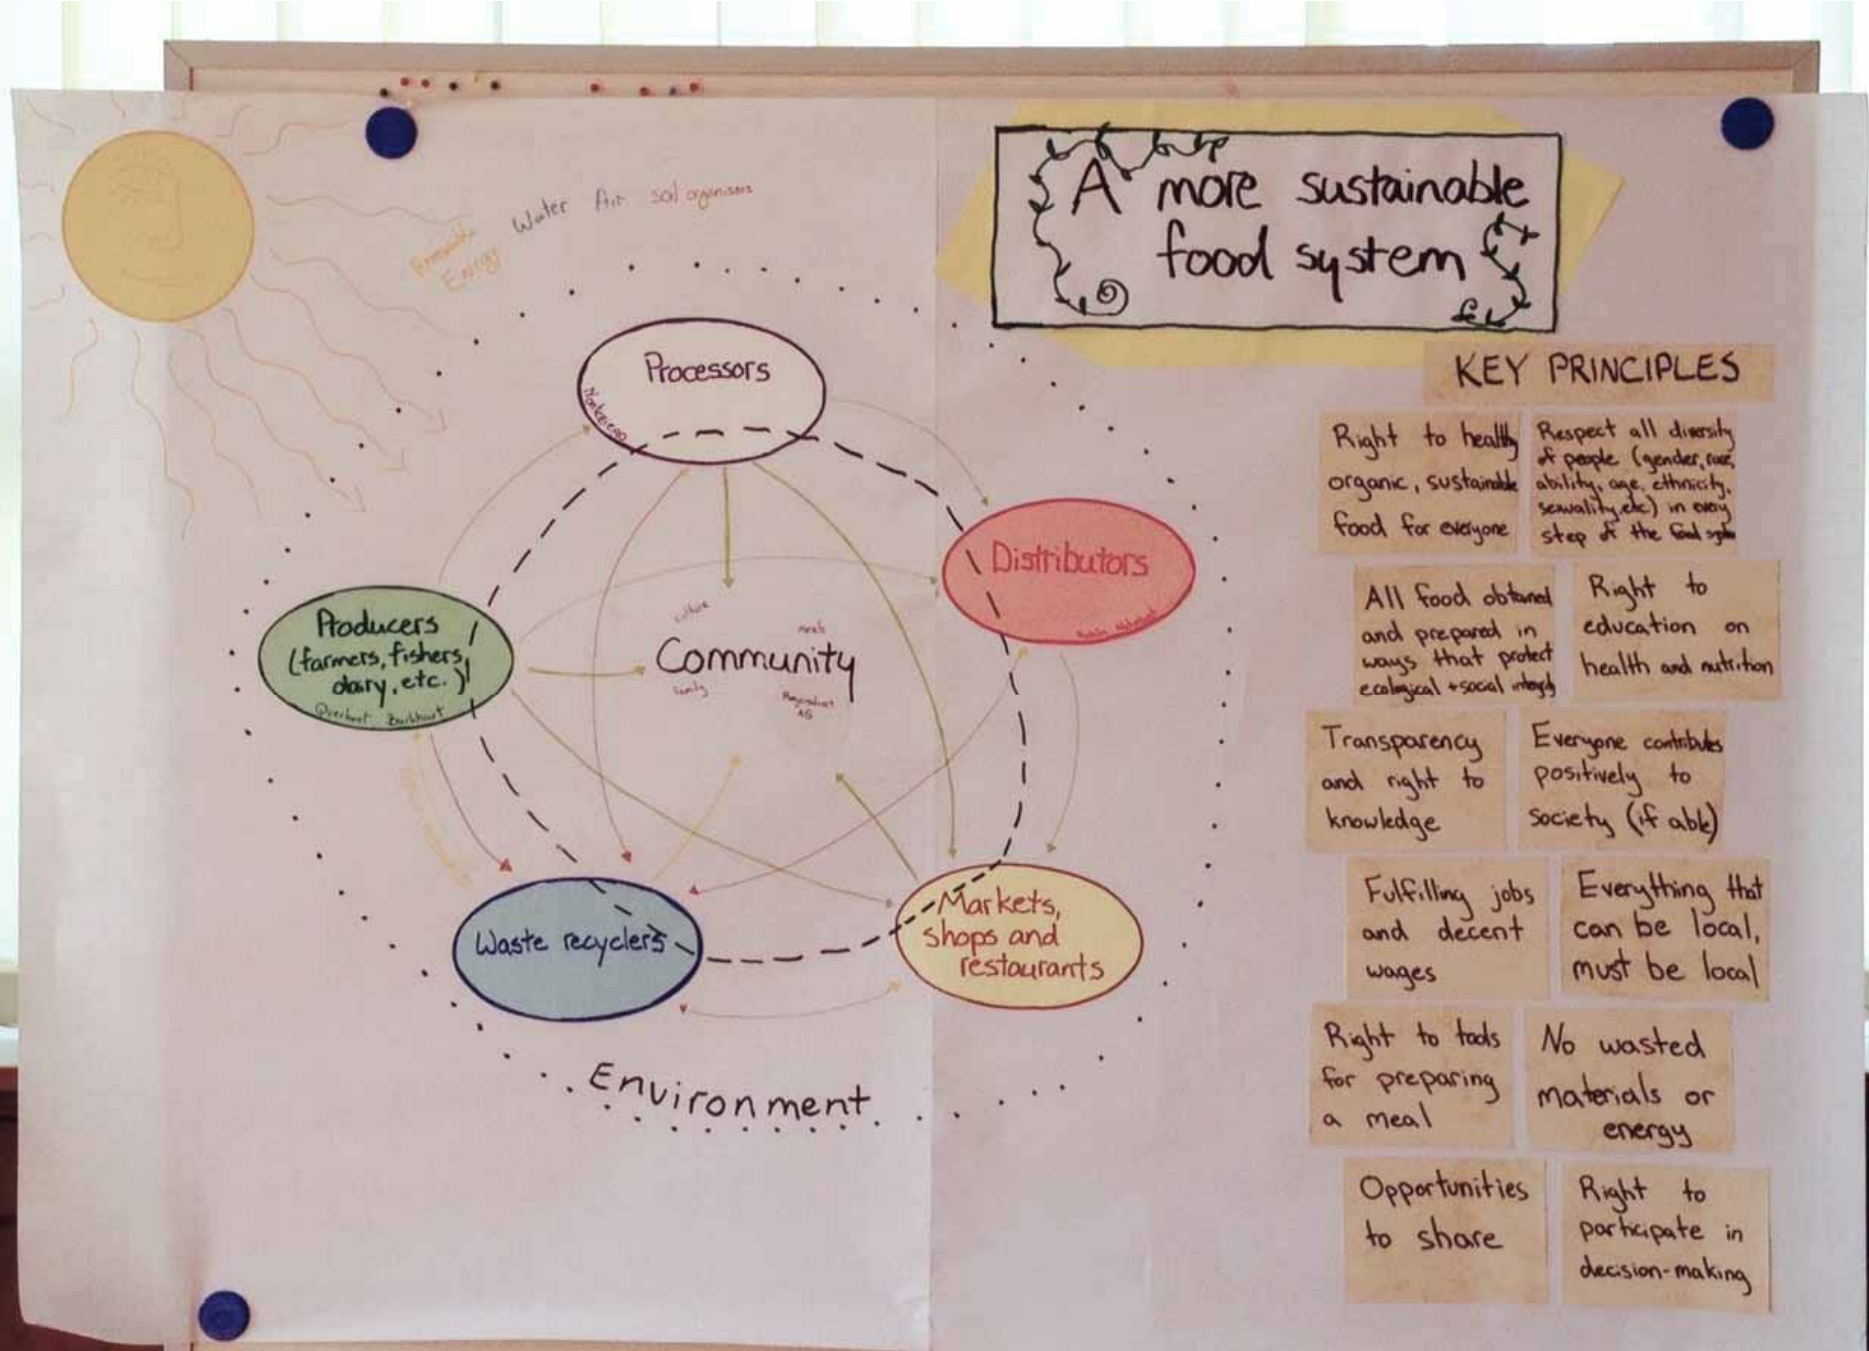 A more sustainable
food system
Water Air soil organisms
Renewable
Energy
Processors
Distributors
Producers
(farmers, fishers,
dairy, etc.)
culture
meals
Community
family
Waste recyclers
Markets,
shops and
restaurants
Environment
KEY PRINCIPLES
Right to healthy
organic, sustainable
food for everyone
Respect all diversity
of people (gender, race,
ability, age, ethnicity,
sexuality, etc) in every
step of the food system
All food obtained
and prepared in
ways that protect
ecological + social integrity
Right to
education on
health and nutrition
Transparency
and right to
knowledge
Everyone contributes
positively to
society (if able)
Fulfilling jobs
and decent
wages
Everything that
can be local,
must be local
Right to tools
for preparing
a meal
No wasted
materials or
energy
Opportunities
to share
Right to
participate in
decision-making